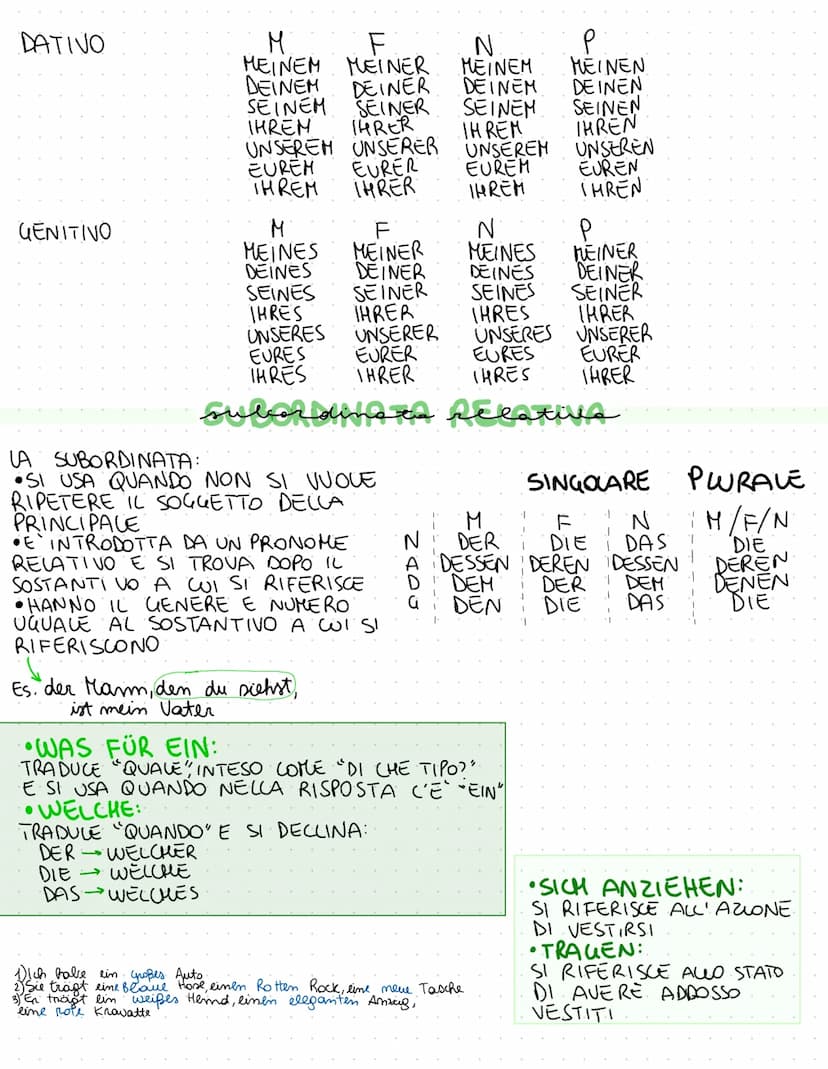 DATIVO M F N P
MEINEM MEINER MEINEM MEINEN
DEINEM DEINER DEINEM DEINEN
SEINEM SEINER SEINEM SEINEN
IHREM IHRER IHREM IHREN
UNSEREM UNSERER UNSEREM UNSEREN
EUREM EURER EUREM EUREN
IHREM IHRER IHREM IHREN
GENITIVO M F N P
MEINES MEINER MEINES MEINER
DEINES DEINER DEINES DEINER
SEINES SEINER SEINES SEINER
IHRES IHRER IHRES IHRER
UNSERES UNSERER UNSERES UNSERER
EURES EURER EURES EURER
IHRES IHRER IHRES IHRER
SUBORDINATA RELATIVA
LA SUBORDINATA:
•SI USA QUANDO NON SI VUOLE
RIPETERE IL SOGGETTO DELLA
PRINCIPALE
•È INTRODOTTA DA UN PRONOME
RELATIVO E SI TROVA DOPO IL
SOSTANTIVO A CUI SI RIFERISCE
•HANNO IL GENERE E NUMERO
UGUALE AL SOSTANTIVO A CUI SI
RIFERISCONO
SINGOLARE PLURALE
M F N M/F/N
N DER DIE DAS DIE
A DESSEN DEREN DESSEN DEREN
D DEM DER DEM DENEN
G DEN DIE DAS DIE
Es. der Mann, den du siehst,
ist mein Vater
•WAS FÜR EIN:
TRADUCE "QUALE", INTESO COME "DI CHE TIPO?"
E SI USA QUANDO NELLA RISPOSTA C'È "EIN"
•WELCHE:
TRADUCE "QUANDO" E SI DECLINA:
DER → WELCHER
DIE → WELCHE
DAS → WELCHES
•SICH ANZIEHEN:
SI RIFERISCE ALL'AZIONE
DI VESTIRSI
•TRAGEN:
SI RIFERISCE ALLO STATO
DI AVERE ADDOSSO
VESTITI
1) Ich habe ein großes Auto
2) Sie trägt eine Blaue Hose, einen Rotten Rock, eine neue Tasche
3) Er trägt ein weißes Hemd, einen eleganten Anzug,
eine rote Krawatte